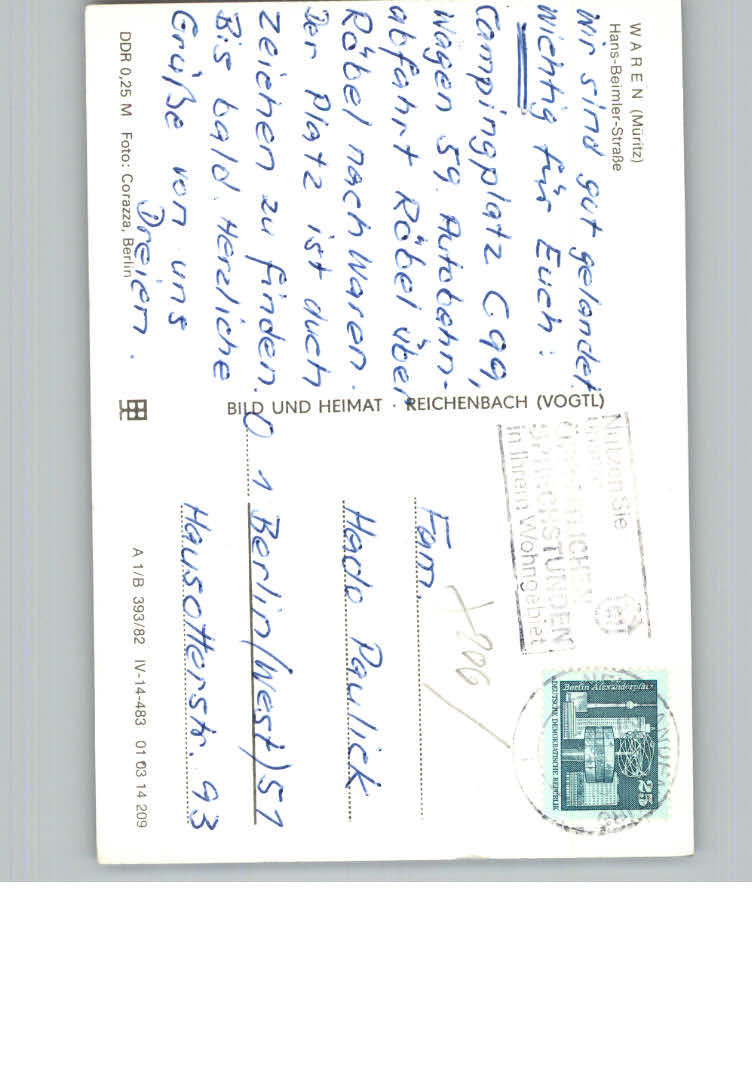 WAREN (Müritz)
Hans-Beimler-Straße
Wir sind gut gelandet
Wichtig für Euch:
Campingplatz C99,
Wagen 59. Autobahn-
abfahrt Röbel über
Röbel nach Waren.
Der Platz ist duch
Zeichen zu finden.
Bis bald. Herzliche
Grüße von uns
Dreien.
DDR 0,25 M Foto: Corazza, Berlin
BILD UND HEIMAT · REICHENBACH (VOGTL)
Nutzen Sie
SPRECHSTUNDEN
in Ihrem Wohngebiet
Berlin Alexanderplatz
DEUTSCHE DEMOKRATISCHE REPUBLIK
25
Fam.
Hado Paulick
O 1 Berlin(West)51
Hausotterstr. 93
A 1/B 393/82 IV-14-483 01 03 14 209